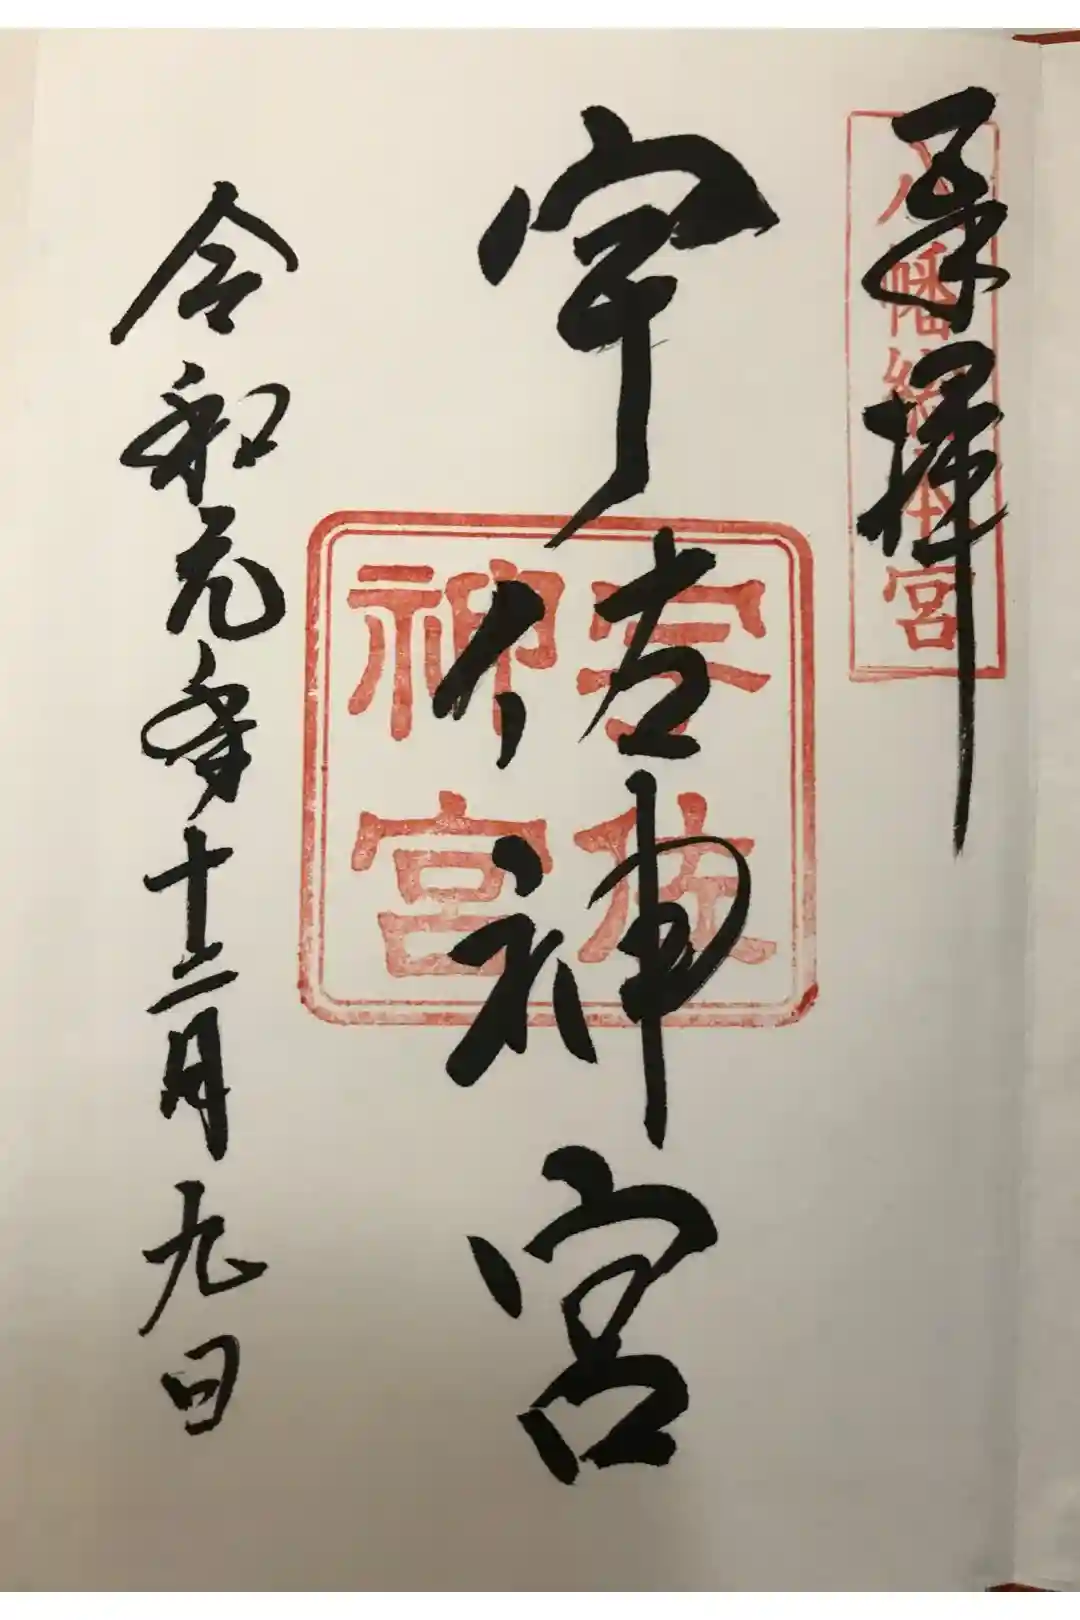 奉拝
八幡総本宮
宇佐神宮
宇佐
神宮
令和元年十二月九日